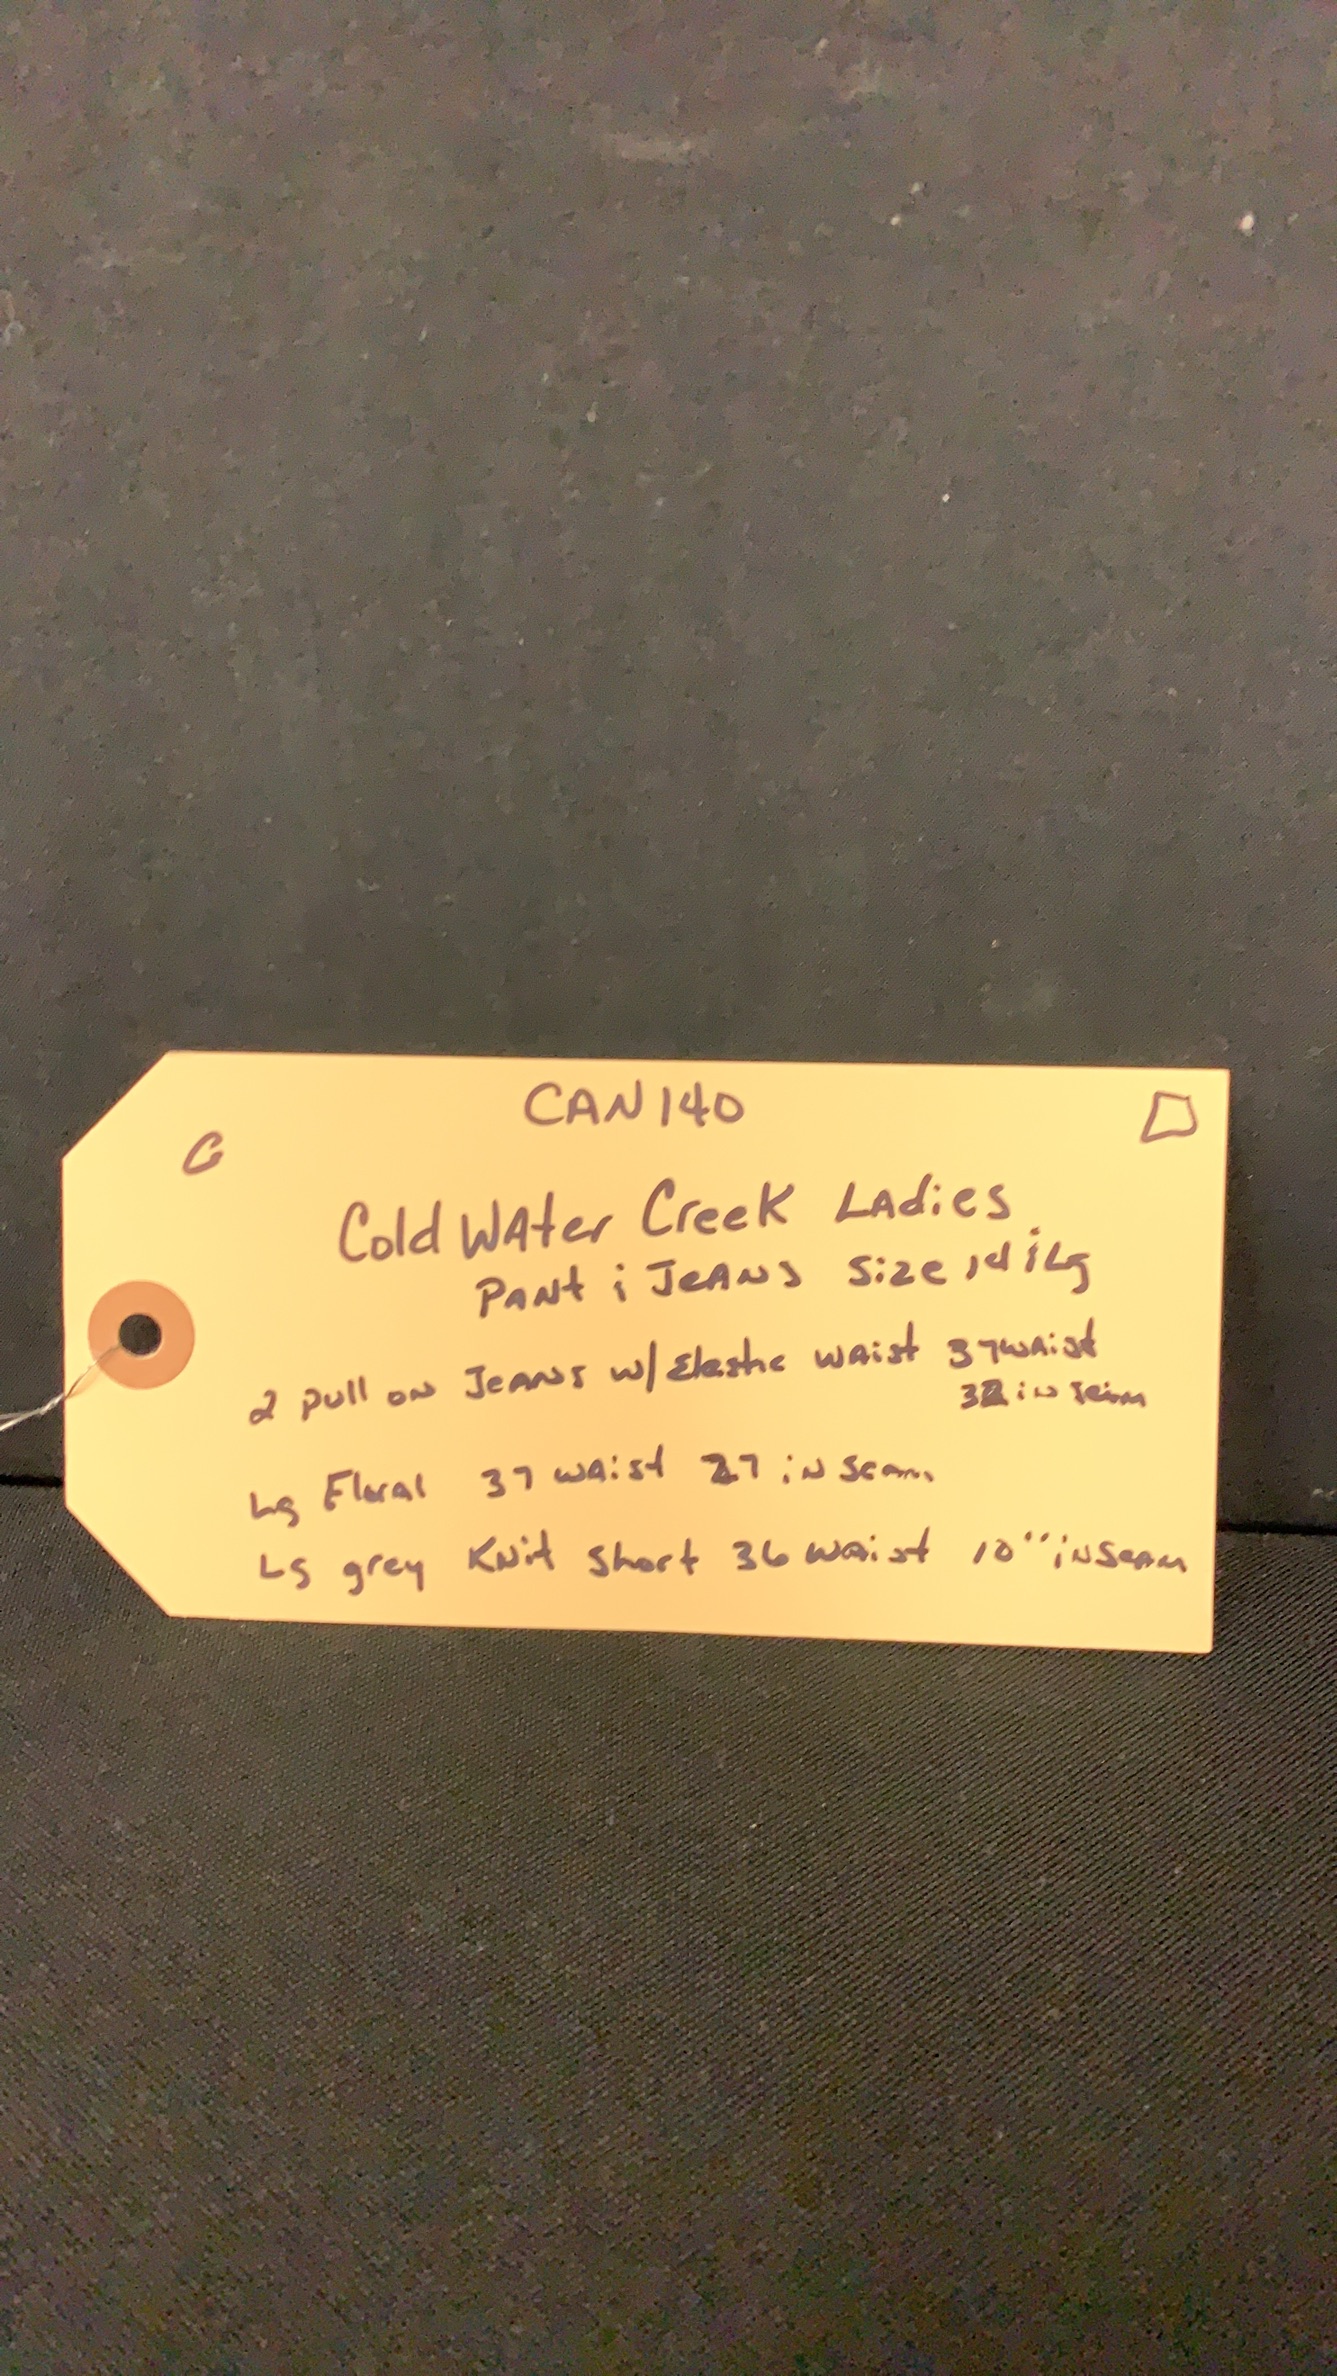 CAN140
C
Cold WAter Creek LAdies
PANt & JeANs Size 14 & Lg
2 pull oN JeANs w/ Elastic WAist 37 WAist
32 iNseam
Lg Floral 37 WAist 27 iNseam
LG grey KNit Short 36 WAist 10" iNseam